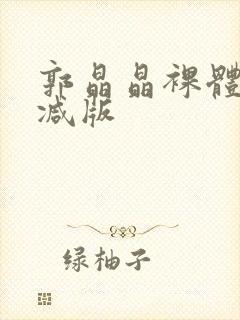 郭晶晶裸體
减版
绿柚子